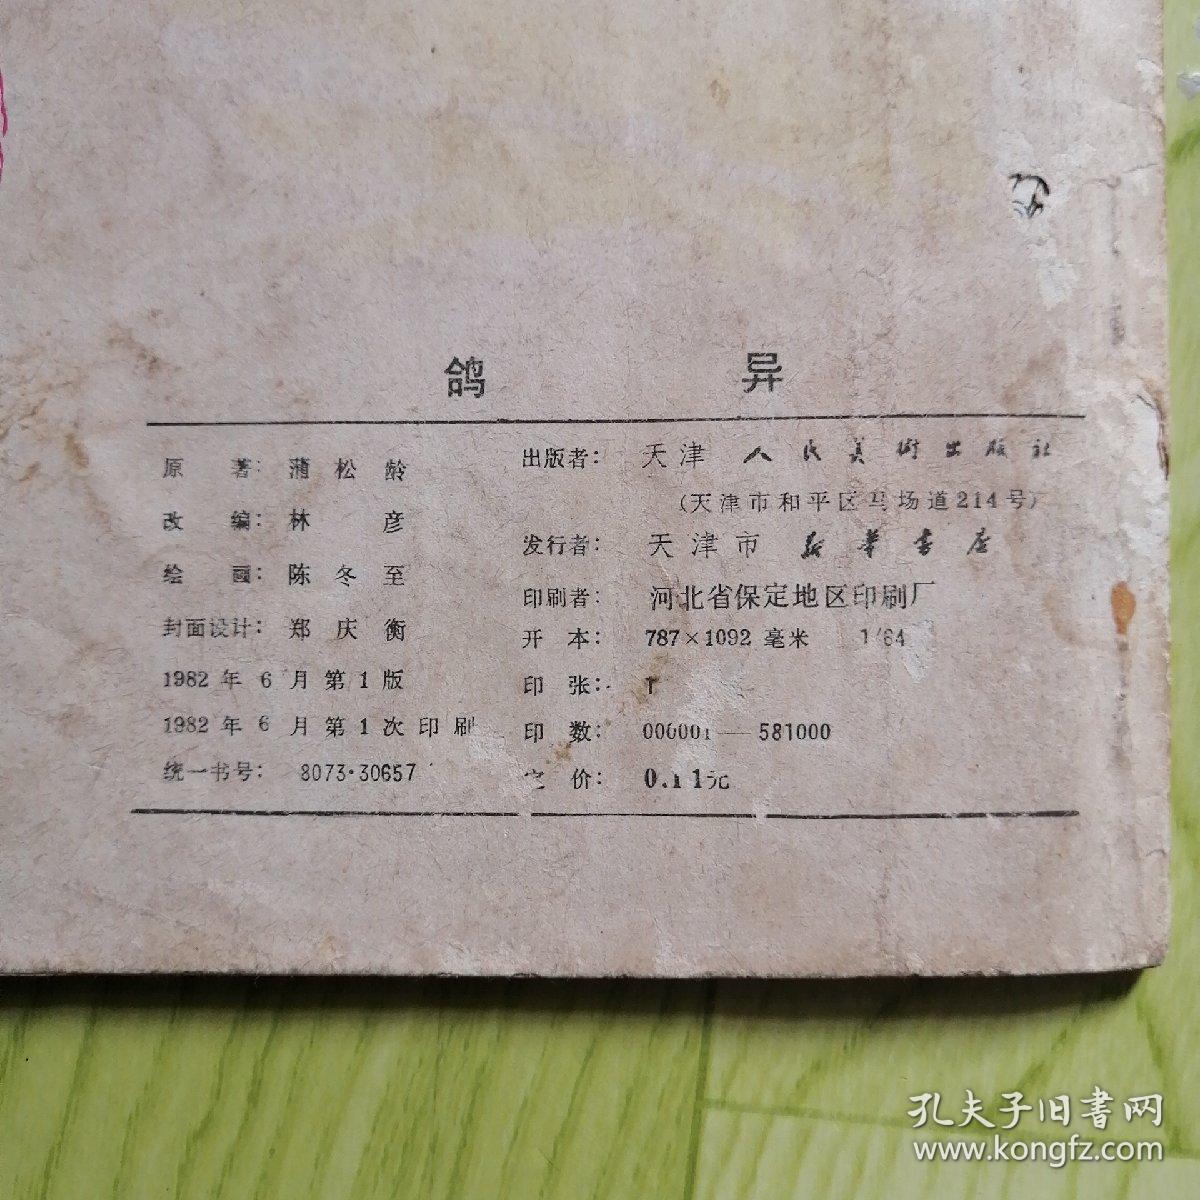 鸽 异
原 著：蒲松龄
改 编：林 彦
绘 画：陈冬至
封面设计：郑庆衡
1982年6月第1版
1982年6月第1次印刷
统一书号：8073·30657
出版者：天津人民美術出版社
（天津市和平区马场道214号）
发行者：天津市新華書店
印刷者：河北省保定地区印刷厂
开 本：787×1092毫米 1/64
印 张：1
印 数：000001—581000
定 价：0.11元
孔夫子旧書网
www.kongfz.com